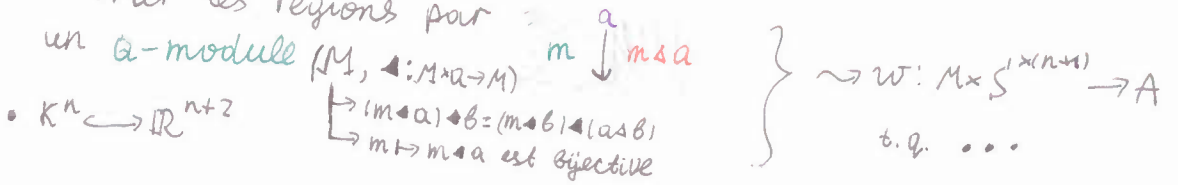 les régions par : a
un Q-module (M, ◂: M×Q→M) m ↓ m◃a
↳ (m◂a)◂b=(m◂b)◂(a◃b)
↳ m↦m◂a est bijective
• Kⁿ ↪ ℝⁿ⁺²
} ⇝ w: M×S^{×(n+1)} → A
t.q. •••